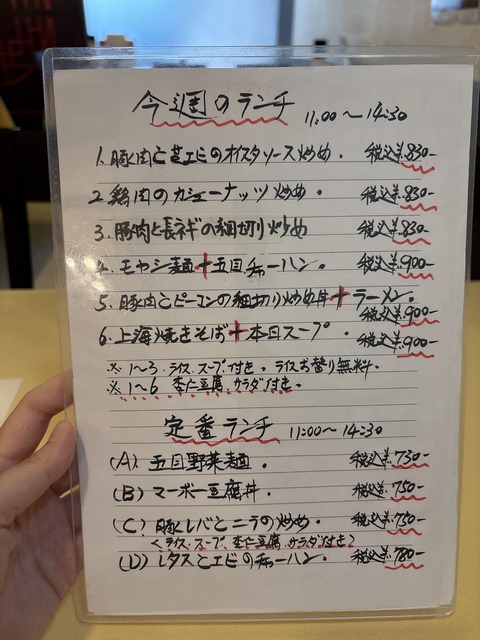 今週のランチ 11:00～14:30
1. 豚肉と芝エビのオイスタソース炒め. 税込¥830-
2. 鶏肉のカシューナッツ炒め. 税込¥830-
3. 豚肉と長ネギの細切り炒め 税込¥830-
4. モヤシ麺+五目チャーハン. 税込¥900-
5. 豚肉とピーマンの細切り炒め丼+ラーメン. 税込¥900-
6. 上海焼きそば+本日スープ. 税込¥900-
※ 1～3. ライス.スープ.付き. ライスお替り無料.
※ 1～6 杏仁豆腐.サラダ付き.
定番ランチ 11:00～14:30
(A) 五目野菜麺. 税込¥730-
(B) マーボー豆腐丼. 税込¥750-
(C) 豚レバとニラの炒め. 税込¥750-
<ライス.スープ.杏仁豆腐.サラダ付き>
(D) レタスとエビのチャーハン. 税込¥780-